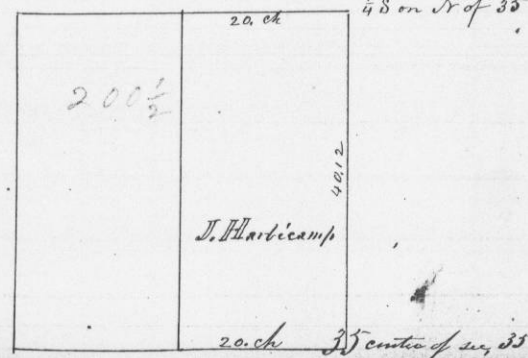 20. ch
¼ S on N of 35
200½
40,12
J. Harbicamp
20. ch
35 centre of sec, 35